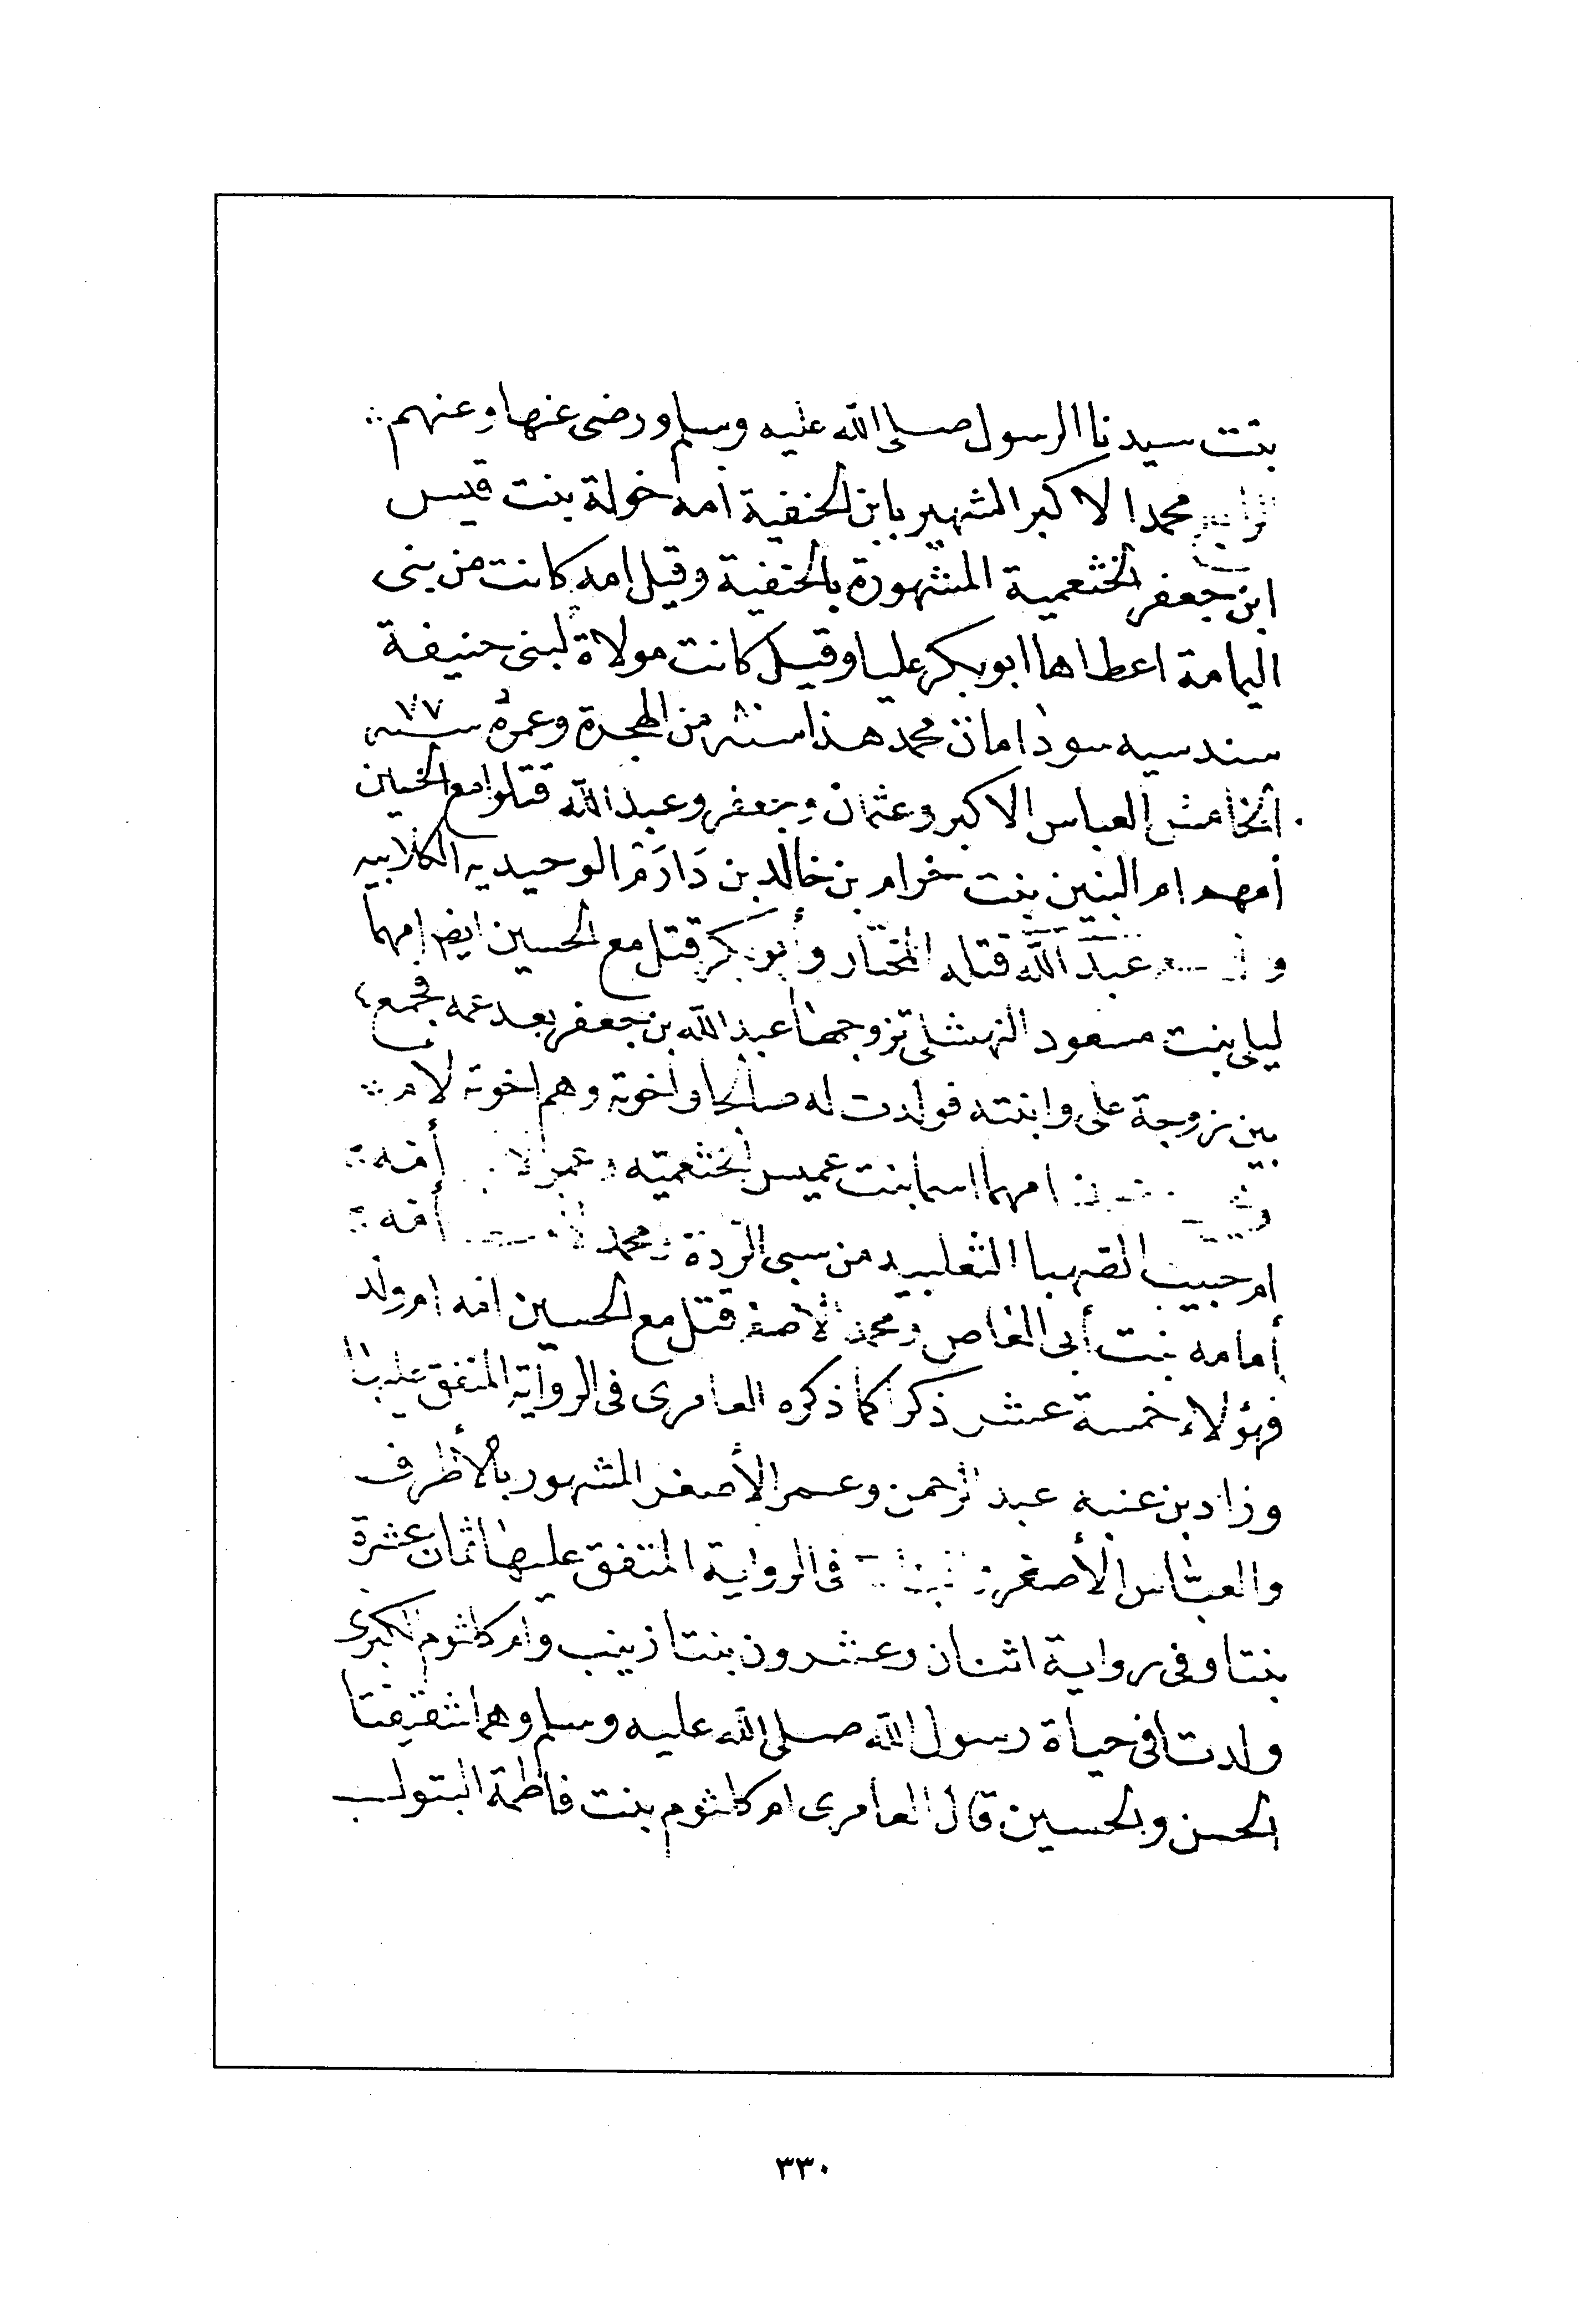 بنت سيدنا الرسول صلى الله عليه وسلم ورضى عنها وعنهم
محمد الاكبر الشهير بابن الحنفية امه خولة بنت قيس
ابن جعفر الخثعمية المشهورة بالحنفية وقيل امه كانت من بنى
اليمامة اعطاها ابوبكر عليا وقيل كانت مولاة لبنى حنيفة
سنديه سودا مات محمد هذا سنة من الهجرة وعمره ٧٧ سنه
الخامس العباس الاكبر وعثمان وجعفر وعبد الله قتلوا مع الحسين
امهم ام البنين بنت خرام بن خالد بن دَارَم الوحيديه الكلابيه
عبد الله قتله المختار وأبو بكر قتل مع الحسين ايضا امهما
ليلى بنت مسعود النهشلى تزوجها عبد الله بن جعفر بعد عمه فجمع
بين زوجة على وابنته فولدت له صالحا واخوته وهم اخوته لام
امهما اسما بنت عميس الخثعميه وعمر الا أمه
ام حبيب الصهبا التغلبيه من سبى الردة ومحمد أمه
أمامه بنت أبى العاص ومحمد الاصغر قتل مع الحسين امه ام ولد
فهؤلاء خمسة عشر ذكرا كما ذكره العامرى فى الرواية المتفق عليها
وزاد بن عنبه عبد الرحمن وعمر الأصغر المشهور بالأطرف
والعباس الأصغر فى الرواية المتفق عليها ثمان عشرة
بنتا وفى رواية اثنان وعشرون بنتا زينب وام كلثوم الكبرى
ولدتا فى حياة رسول الله صلى الله عليه وسلم وهما شقيقتا
الحسن والحسين قال العامرى ام كلثوم بنت فاطمة البتول
٣٣٠